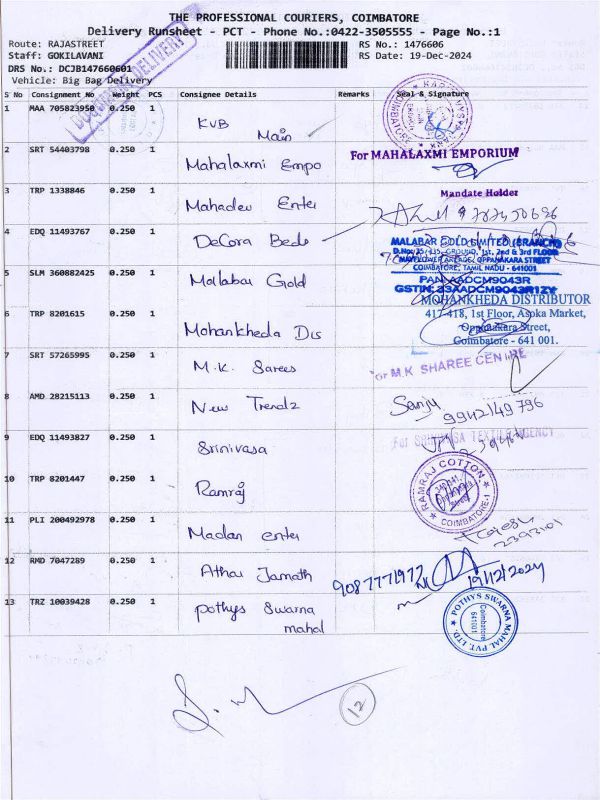 THE PROFESSIONAL COURIERS, COIMBATORE
Delivery Runsheet - PCT - Phone No.:0422-3505555 - Page No.:1
Route: RAJASTREET RS No.: 1476606
Staff: GOKILAVANI RS Date: 19-Dec-2024
DRS No.: DCJB147660601
Vehicle: Big Bag Delivery
S No Consignment No Weight PCS Consignee Details Remarks Seal & Signature
1 MAA 705823950 0.250 1 KVB Main
2 SRT 54403798 0.250 1 Mahalaxmi Empo For MAHALAXMI EMPORIUM
Mandate Holder
3 TRP 1338846 0.250 1 Mahadev Enter
4 EDQ 11493767 0.250 1 DeCora Beds
MALABAR GOLD LIMITED (BRANCH)
MAYFLOWER ARCUS, OPPANAKARA STREET
COIMBATORE, TAMIL NADU - 641001
5 SLM 360882425 0.250 1 Malabar Gold PAN:AADCM9043R
GSTIN: 33AADCM9043R1ZY
MOHANKHEDA DISTRIBUTOR
6 TRP 8201615 0.250 1 Mohankheda Dis 417-418, 1st Floor, Asoka Market,
Oppanakara Street,
Coimbatore - 641 001.
7 SRT 57265995 0.250 1 M.K. Sarees For M.K SHAREE CENTRE
8 AMD 28215113 0.250 1 New Trendz Sanju 9942149796
9 EDQ 11493827 0.250 1 Srinivasa For SRINIVASA TEXTILE AGENCY
10 TRP 8201447 0.250 1 Ramraj RAMRAJ COTTON
COIMBATORE-1
11 PLI 200492978 0.250 1 Madan enter
12 RMD 7047289 0.250 1 Athar Jamath 9087771972 19/12/2024
13 TRZ 10039428 0.250 1 Pothys Swarna mahal POTHYS SWARNA MAHAL PVT. LTD.
Coimbatore
641001
12